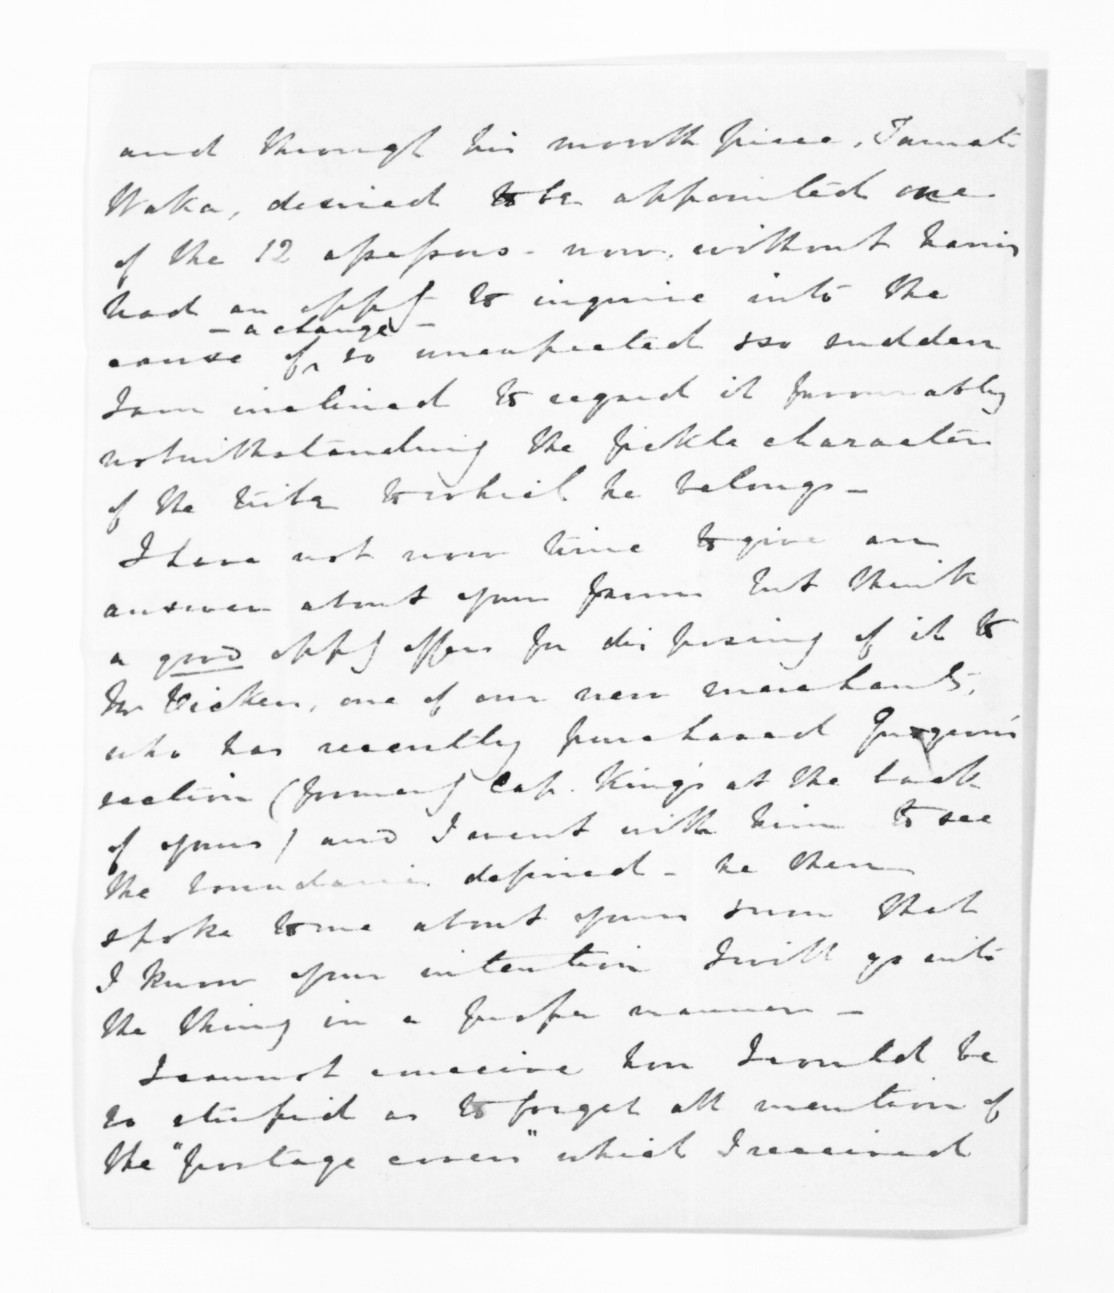 and through his mouth piece, Tamati
Waka, desired to be appointed one
of the 12 assessors - now, without having
had an oppy to inquire into the
- a change -
cause of so unexpected & so sudden
I am inclined to regard it favourably
notwithstanding the fickle character
of the tribe to which he belongs -
I have not now time to give an
answer about your farm but think
a good oppy offers for disposing of it to
Mr Vicken, one of our new merchants,
who has recently purchased
section (formerly Cap. King's at the back
of yours) and I went with him to see
the boundaries defined - he then
spoke to me about yours now that
I know your intention I will go into
the thing in a proper manner -
I cannot conceive how I could be
so stupid as to forget all mention of
the "postage covers" which I received